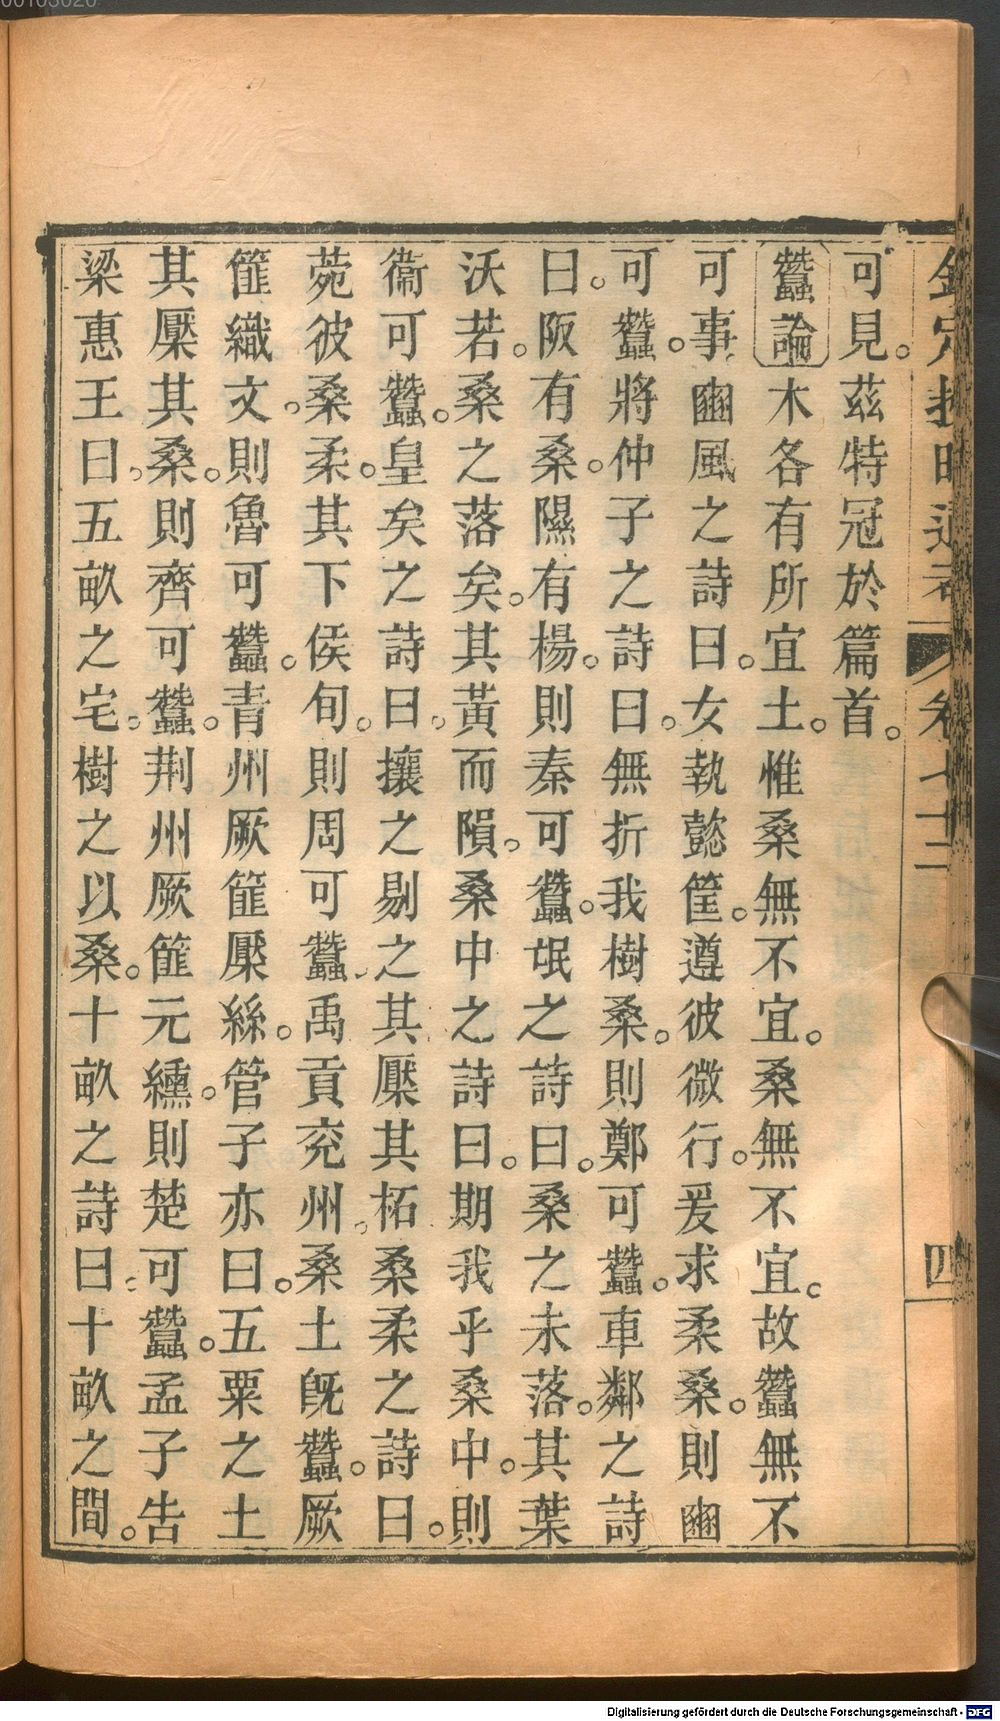 00103020
欽定授時通考 卷七十二 四
可見。茲特冠於篇首。
蠶論 木各有所宜土。惟桑無不宜。桑無不宜。故蠶無不
可事。豳風之詩曰。女執懿筐。遵彼微行。爰求柔桑。則豳
可蠶。將仲子之詩曰。無折我樹桑。則鄭可蠶。車鄰之詩
曰。阪有桑。隰有楊。則秦可蠶。氓之詩曰。桑之未落。其葉
沃若。桑之落矣。其黃而隕。桑中之詩曰。期我乎桑中。則
衞可蠶。皇矣之詩曰。攘之剔之其檿其柘桑柔之詩曰。
菀彼桑柔。其下侯旬。則周可蠶。禹貢兖州。桑土旣蠶。厥
篚織文。則魯可蠶。青州厥篚檿絲。管子亦曰。五粟之土
其檿其桑。則齊可蠶。荆州厥篚元纁。則楚可蠶。孟子告
梁惠王曰。五畝之宅。樹之以桑。十畝之詩曰。十畝之間。
Digitalisierung gefördert durch die Deutsche Forschungsgemeinschaft - DFG